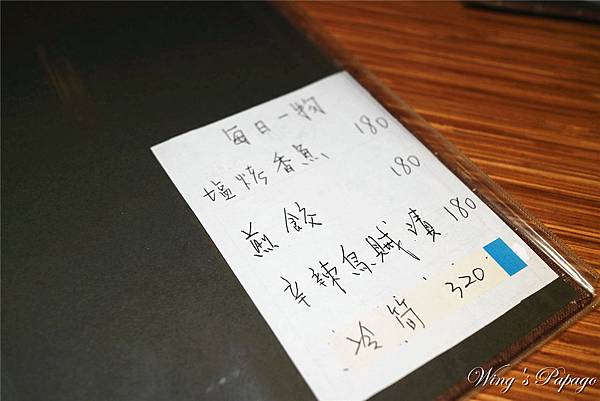 每日一物
塩烤香魚 180
煎餃 180
辛辣烏賊漬 180
冷筍 320
Wing's Papago